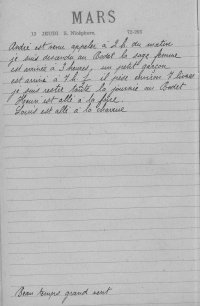 MARS
13 JEUDI S. Nicéphore. 72-293
André est venu appeler à 2 h. du matin
je suis descendu au Bodet la sage femme
est arrivée à 3 heures, un petit garçon
est arrivé à 7 h ½ il pèse environ 7 livres
je suis restée toute la journée au Bodet
Henri est allé à la foire
Louis est allé à la charrue
Beau temps grand vent